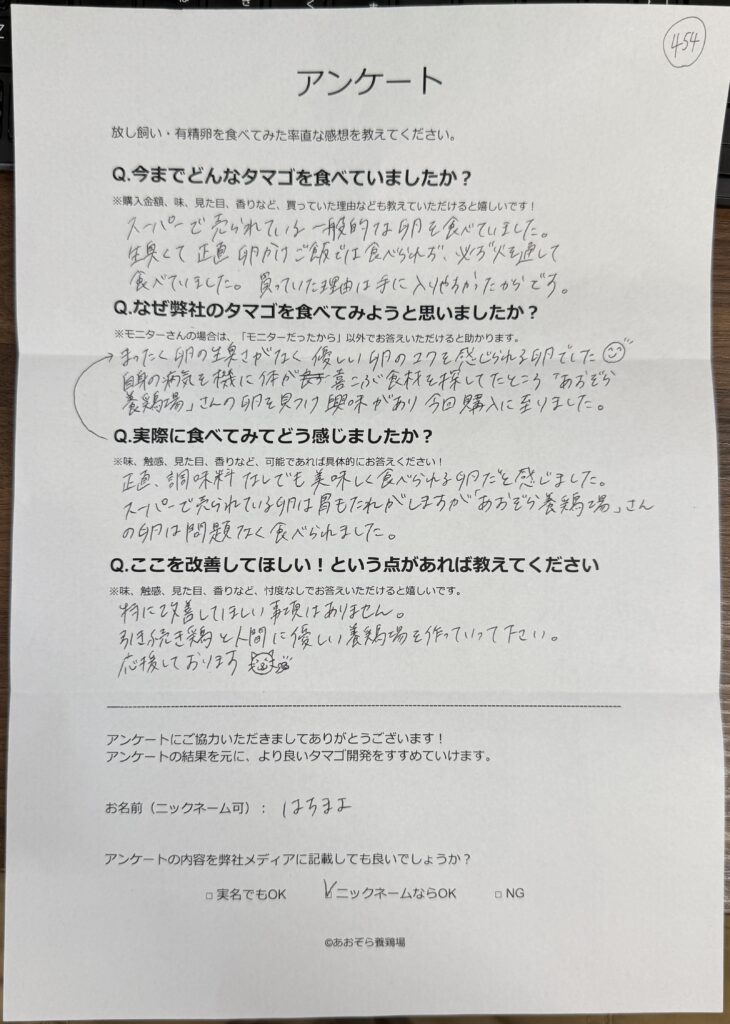 454
アンケート
放し飼い・有精卵を食べてみた率直な感想を教えてください。
Q.今までどんなタマゴを食べていましたか？
※購入金額、味、見た目、香りなど、買っていた理由なども教えていただけると嬉しいです！
スーパーで売られている一般的な卵を食べていました。
生臭くて正直卵かけご飯では食べられず、必ず火を通して
食べていました。買っていた理由は手に入りやすかったからです。
Q.なぜ弊社のタマゴを食べてみようと思いましたか？
※モニターさんの場合は、「モニターだったから」以外でお答えいただけると助かります。
まったく卵の生臭さがなく優しい卵のコクを感じられる卵でした
自身の病気を機に体が喜こぶ食材を探してたところ「あおぞら
養鶏場」さんの卵を見つけ興味があり今回購入に至りました。
Q.実際に食べてみてどう感じましたか？
※味、触感、見た目、香りなど、可能であれば具体的にお答えください！
正直、調味料なしでも美味しく食べられる卵だと感じました。
スーパーで売られている卵は胃もたれがしますが「あおぞら養鶏場」さん
の卵は問題なく食べられました。
Q.ここを改善してほしい！という点があれば教えてください
※味、触感、見た目、香りなど、忖度なしでお答えいただけると嬉しいです。
特に改善してほしい事項はありません。
引き続き鶏と人間に優しい養鶏場を作っていって下さい。
応援しております
アンケートにご協力いただきましてありがとうございます！
アンケートの結果を元に、より良いタマゴ開発をすすめていけます。
お名前（ニックネーム可）： はちまよ
アンケートの内容を弊社メディアに記載しても良いでしょうか？
□ 実名でもOK ☑ ニックネームならOK □ NG
©あおぞら養鶏場